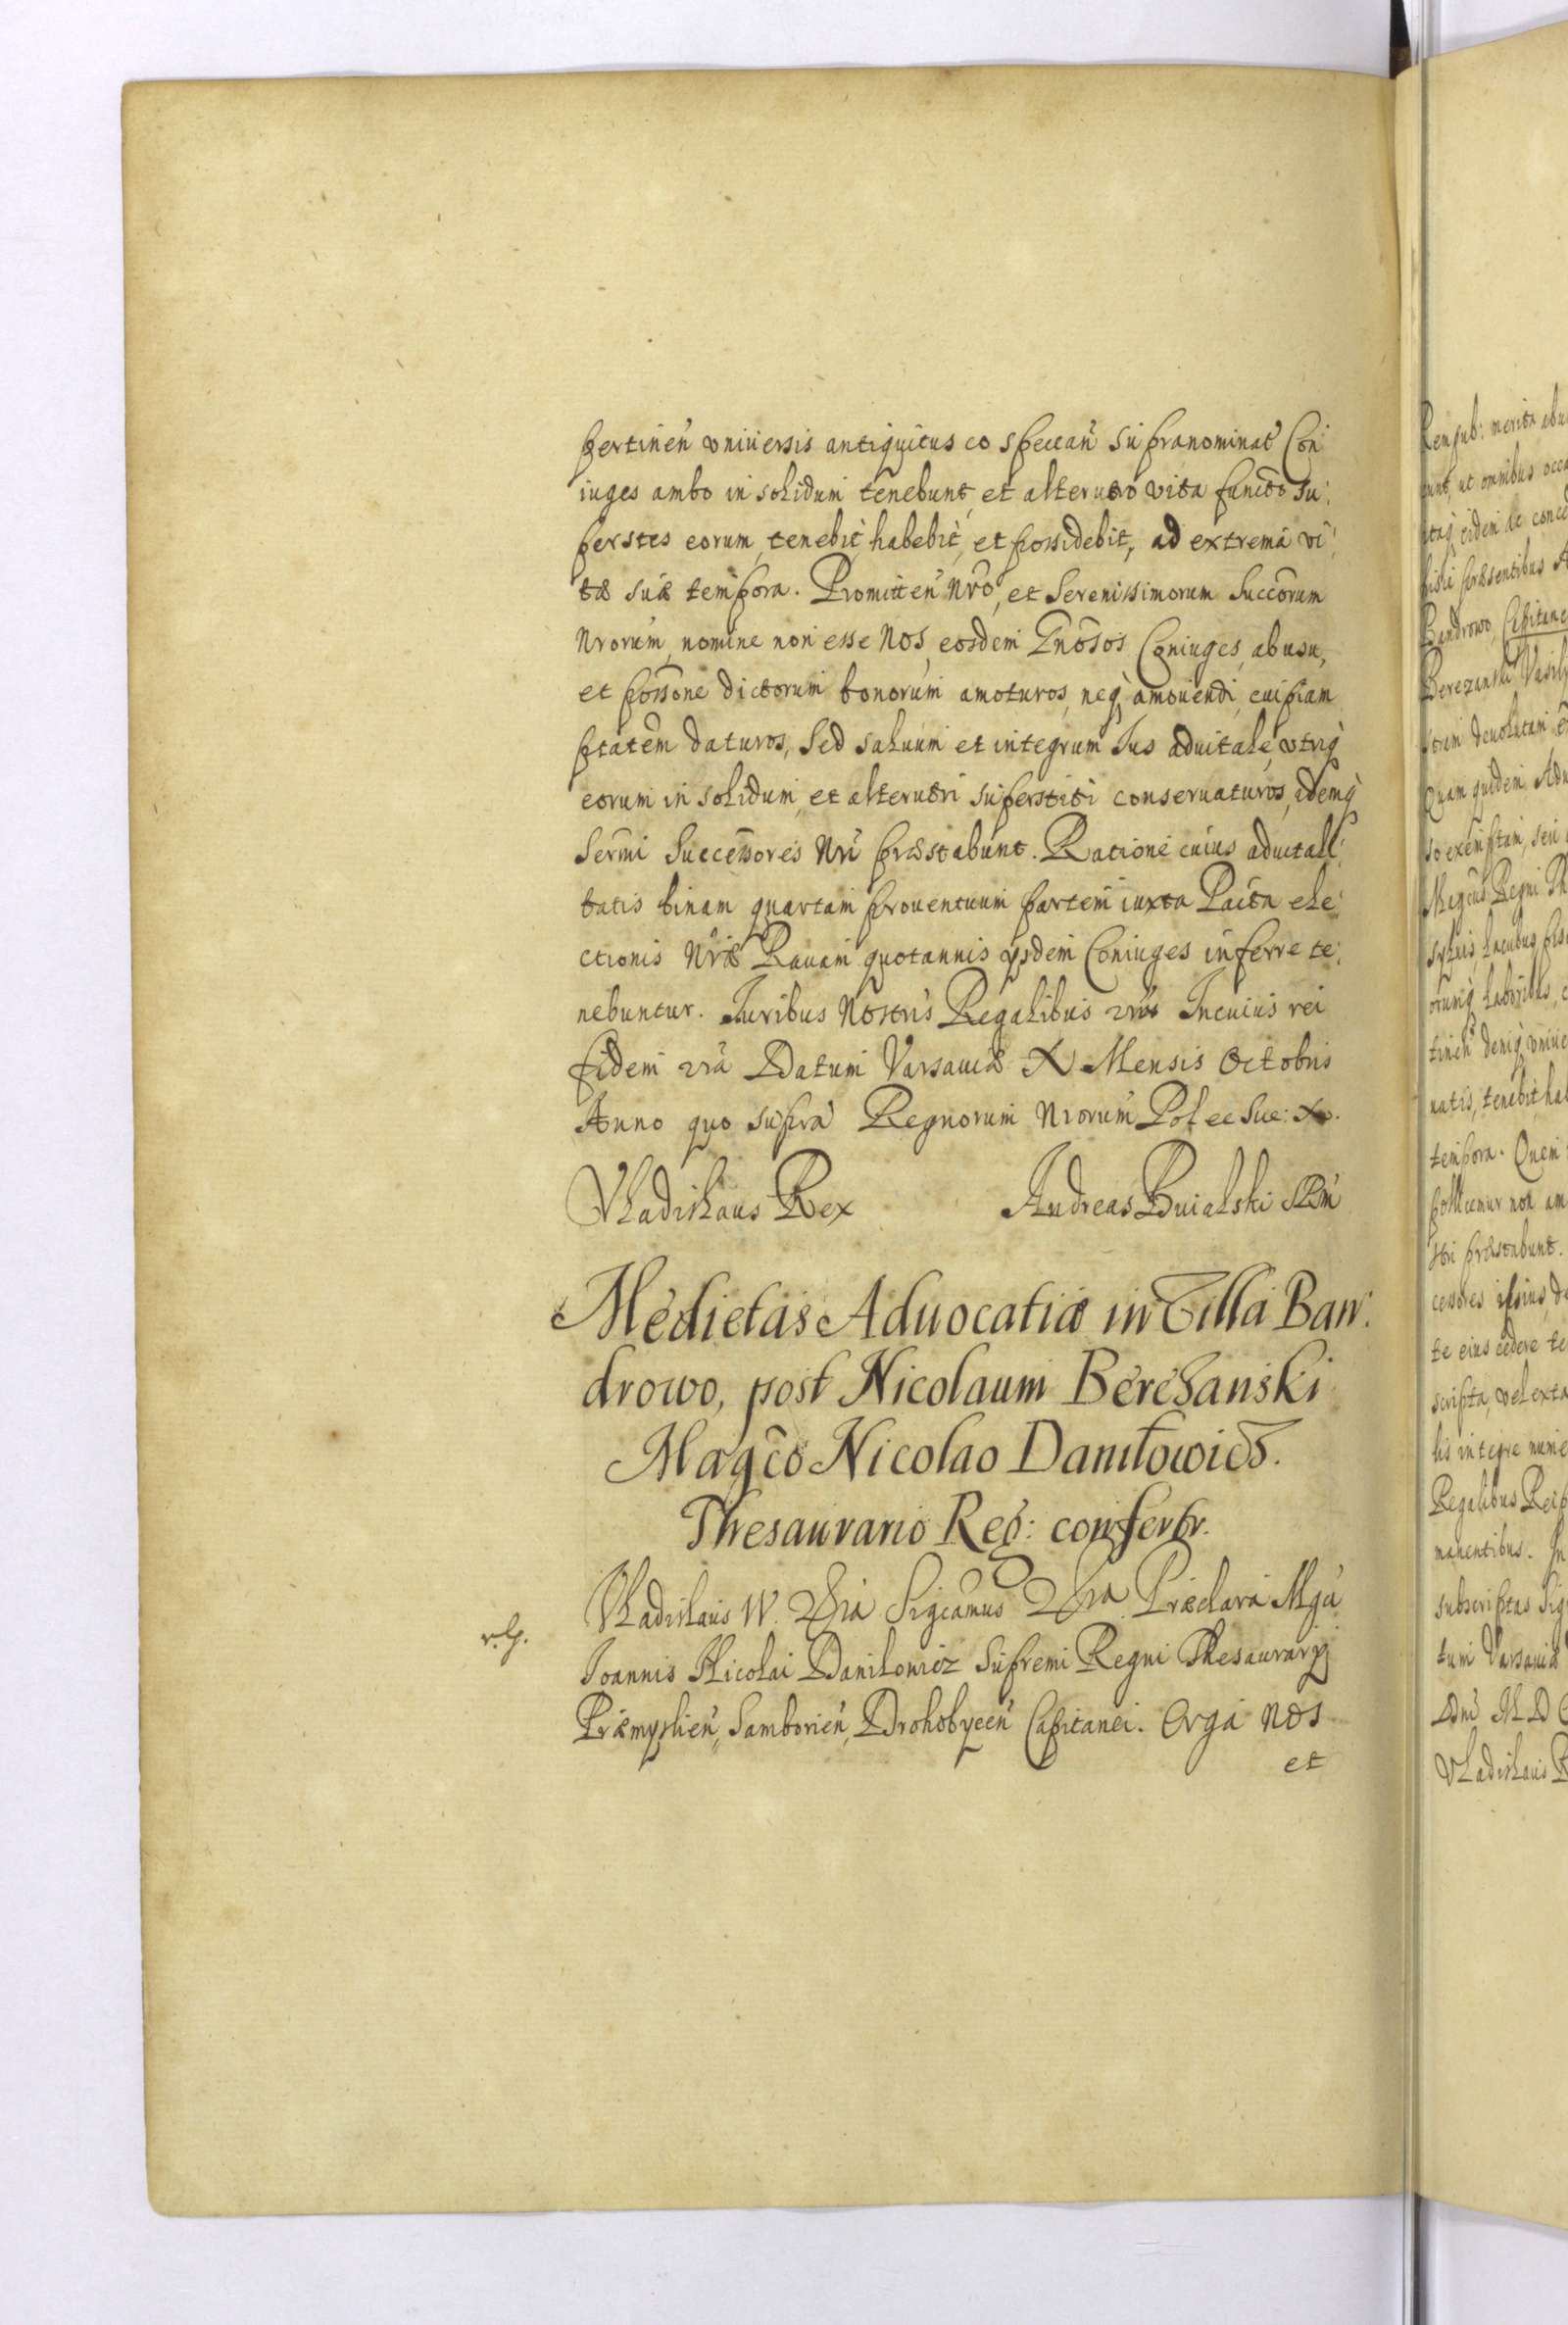 pertinen̄ vniuersis antiquitus eo spectan̄ supranominat̄ Con:
iuges ambo in solidum tenebunt, et alterutro vita functo su:
perstes eorum, tenebit, habebit, et possidebit, ad extrema vi:
tæ suæ tempora. Promitten̄ nr̄o, et Serenissimorum Succōrum
nr̄orum, nomine non esse Nos, eosdem Gn̄osos Coniuges, ab usu,
et possōne dictorum bonorum amoturos, neq; amouendi, cuipiam
ptātem daturos, Sed saluum et integrum Ius aduitale, vtriq;
eorum in solidum, et alterutri superstiti conseruaturos, idemq;
Serm̄i Successores Nr̄i præstabunt. Ratione cuius aduitali:
tatis binam quartam prouentuum partem iuxta Pacta ele:
ctionis Nr̄æ Rauam quotannis ijsdem Coniuges inferre te:
nebuntur. Iuribus Nostris Regalibus Incuius rei
fidem Datum Varsauiæ X Mensis Octobris
Anno quo supra Regnorum Nr̄orum Pol et Sue: X.
Vladislaus Rex Andreas Buialski
Medietas Aduocatiæ in Villa Ban:
drowo, post Nicolaum Berezanski
Magc̄o Nicolao Daniłowicz.
Thesaurario Reg: confertr.
Vladislaus IV. Sigcamus Præclara Mgci
r. G.
Ioannis Nicolai Danilowicz Supremi Regni Thesaurarij
Præmyslien̄, Samborien̄, Drohobycen̄ Capitanei. Erga Nos
et
Reipub: merita
ut omnibus
itaq; eidem de
præsentibus
Bandrowo, Capitane
Berezanski
deuolutam
Quam quidem Adu
so exemptam, seu
Regni Th
syluis, lacubus,
laboribus,
tinen̄ deniq; vniue
natis, tenebit, hab
tempora. Quem
pollicemur non am
præstabunt.
cessores ipsius,
te eius cedere te
scripta, vel exta
lis integre
Regalibus Reip
manentibus. In
subscriptas Sig
tum Varsauiæ
Dn̄i M D C
Vladislaus R